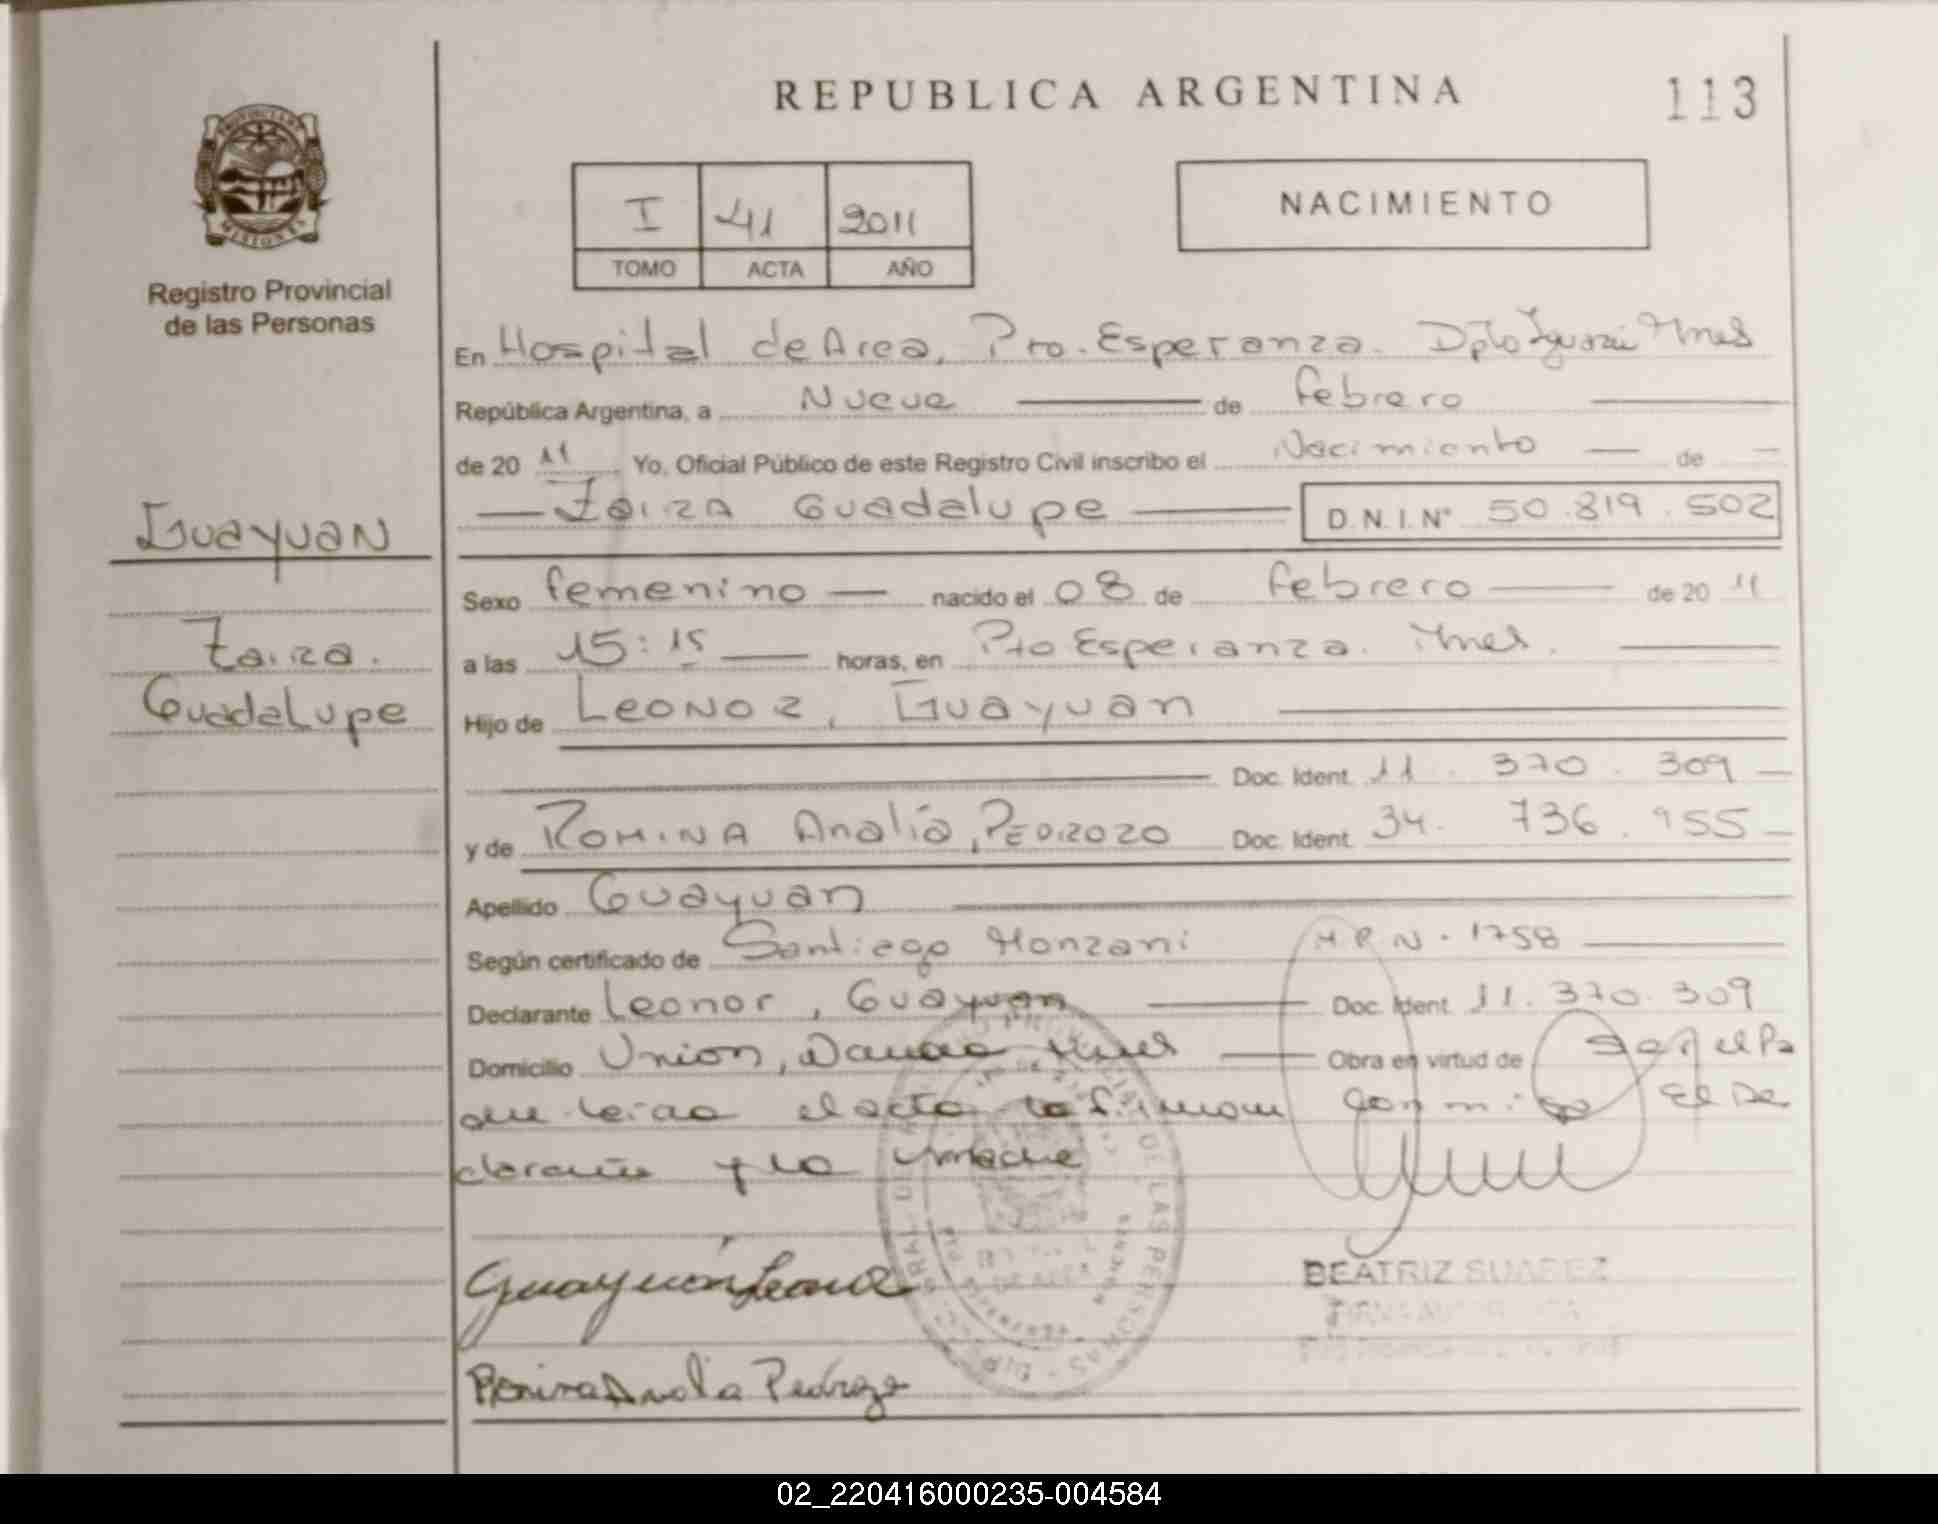 REPUBLICA ARGENTINA
113
PROVINCIA DE
MISIONES
Registro Provincial
de las Personas
I 41 2011
TOMO ACTA AÑO
NACIMIENTO
En Hospital de Area, Pto. Esperanza. Dpto Iguazú Mnes
República Argentina, a Nueve de febrero
de 20 11 Yo, Oficial Público de este Registro Civil inscribo el Nacimiento de
Zaira Guadalupe D.N.I.N° 50.819.502
Guayuan
Zaira
Guadalupe
Sexo femenino nacido el 08 de febrero de 20 11
a las 15:15 horas, en Pto Esperanza. Mnes.
Hijo de Leonor, Guayuan
Doc. Ident. 11.370.309
y de Romina Analía, Pedrozo Doc. Ident. 34.736.955
Apellido Guayuan
Según certificado de Santiago Monzani M.P.N. 1758
Declarante Leonor, Guayuan Doc. Ident. 11.370.309
Domicilio Union, Wanda Mnes Obra en virtud de
el acta la firman conmigo El De
clarante y la madre
Guayuan Leonor
Romina Analia Pedrozo
BEATRIZ SUAREZ
02_220416000235-004584